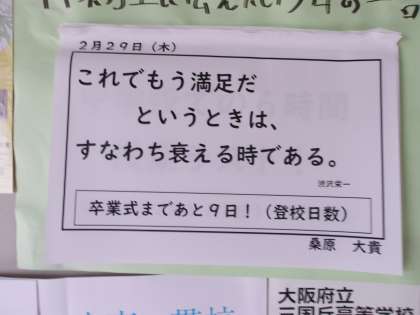 2月29日（木）
これでもう満足だ
というときは、
すなわち衰える時である。
渋沢栄一
卒業式まであと9日！（登校日数）
桑原　大貴
大阪府立
三国丘高等学校